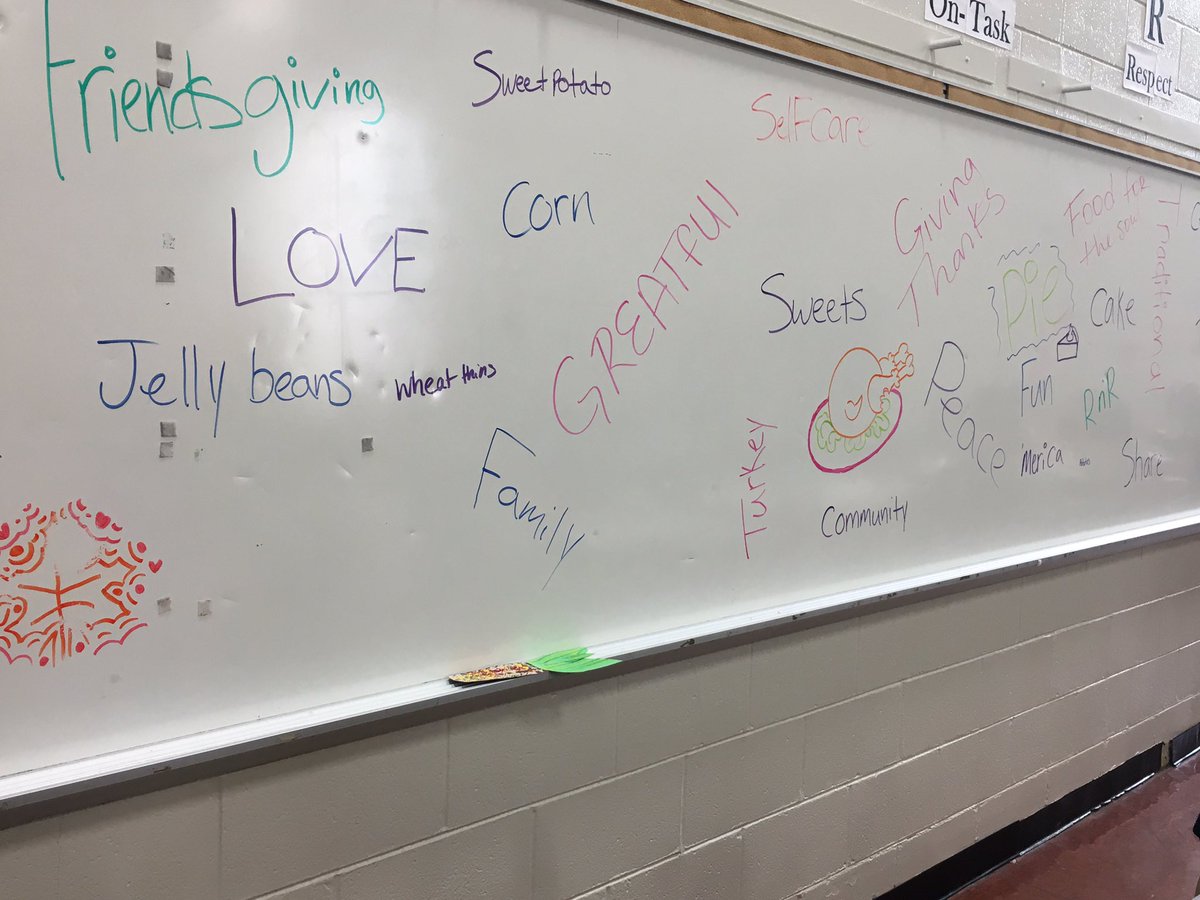 On-Task
R
Respect
Friendsgiving
Sweet Potato
SelF Care
LOVE
Corn
GREATFUl
Giving
Thanks
Food for
the soul
Traditional
Sweets
Pie
Cake
Jelly beans
wheat thins
Peace
Fun
RnR
Family
Turkey
'merica
Share
Community